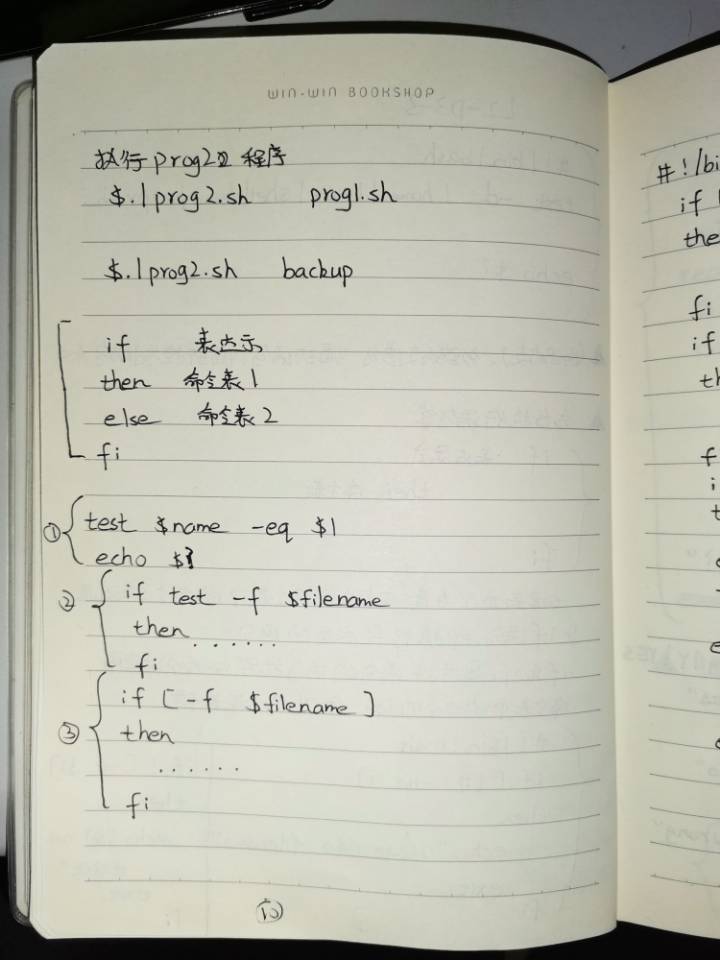 WIN-WIN BOOKSHOP
执行 prog2 程序
$./prog2.sh prog1.sh
$./prog2.sh backup
if 表达示
then 命令表1
else 命令表2
fi
① test $name -eq $1
echo $?
② if test -f $filename
then ......
fi
③ if [ -f $filename ]
then
......
fi
10
#!/bi
if
the
fi
if
th
f
i
t